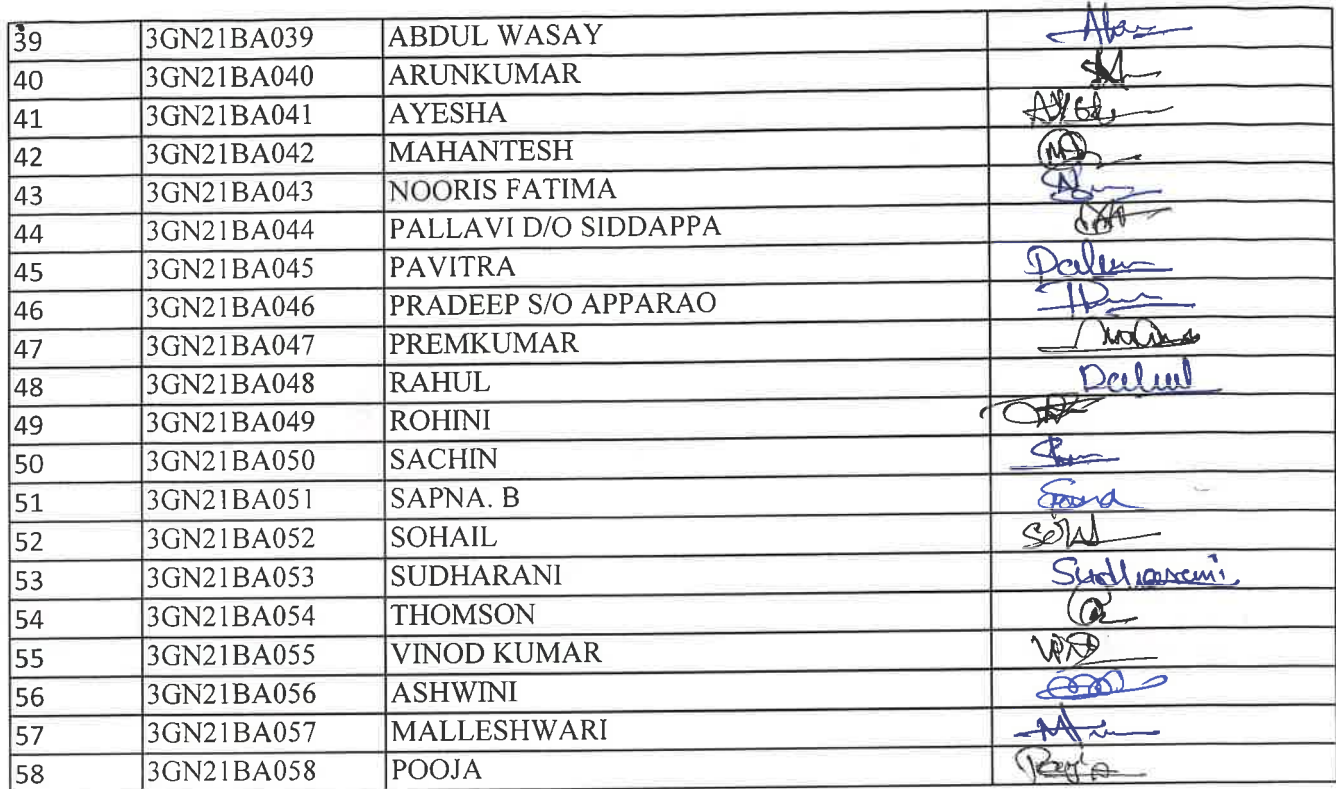 39 3GN21BA039 ABDUL WASAY
40 3GN21BA040 ARUNKUMAR
41 3GN21BA041 AYESHA
42 3GN21BA042 MAHANTESH
43 3GN21BA043 NOORIS FATIMA
44 3GN21BA044 PALLAVI D/O SIDDAPPA
45 3GN21BA045 PAVITRA
46 3GN21BA046 PRADEEP S/O APPARAO
47 3GN21BA047 PREMKUMAR
48 3GN21BA048 RAHUL
49 3GN21BA049 ROHINI
50 3GN21BA050 SACHIN
51 3GN21BA051 SAPNA. B
52 3GN21BA052 SOHAIL
53 3GN21BA053 SUDHARANI Sudharani
54 3GN21BA054 THOMSON
55 3GN21BA055 VINOD KUMAR
56 3GN21BA056 ASHWINI
57 3GN21BA057 MALLESHWARI
58 3GN21BA058 POOJA